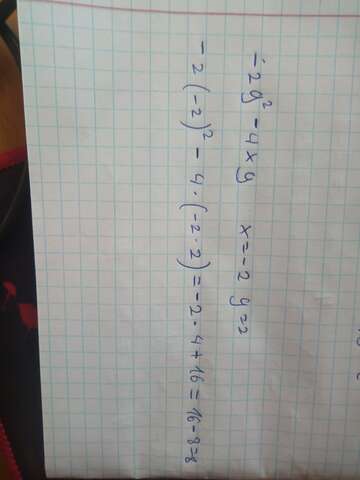 -2y² - 4xy   x = -2   y = 2
-2(-2)² - 4·(-2·2) = -2·4 + 16 = 16 - 8 = 8